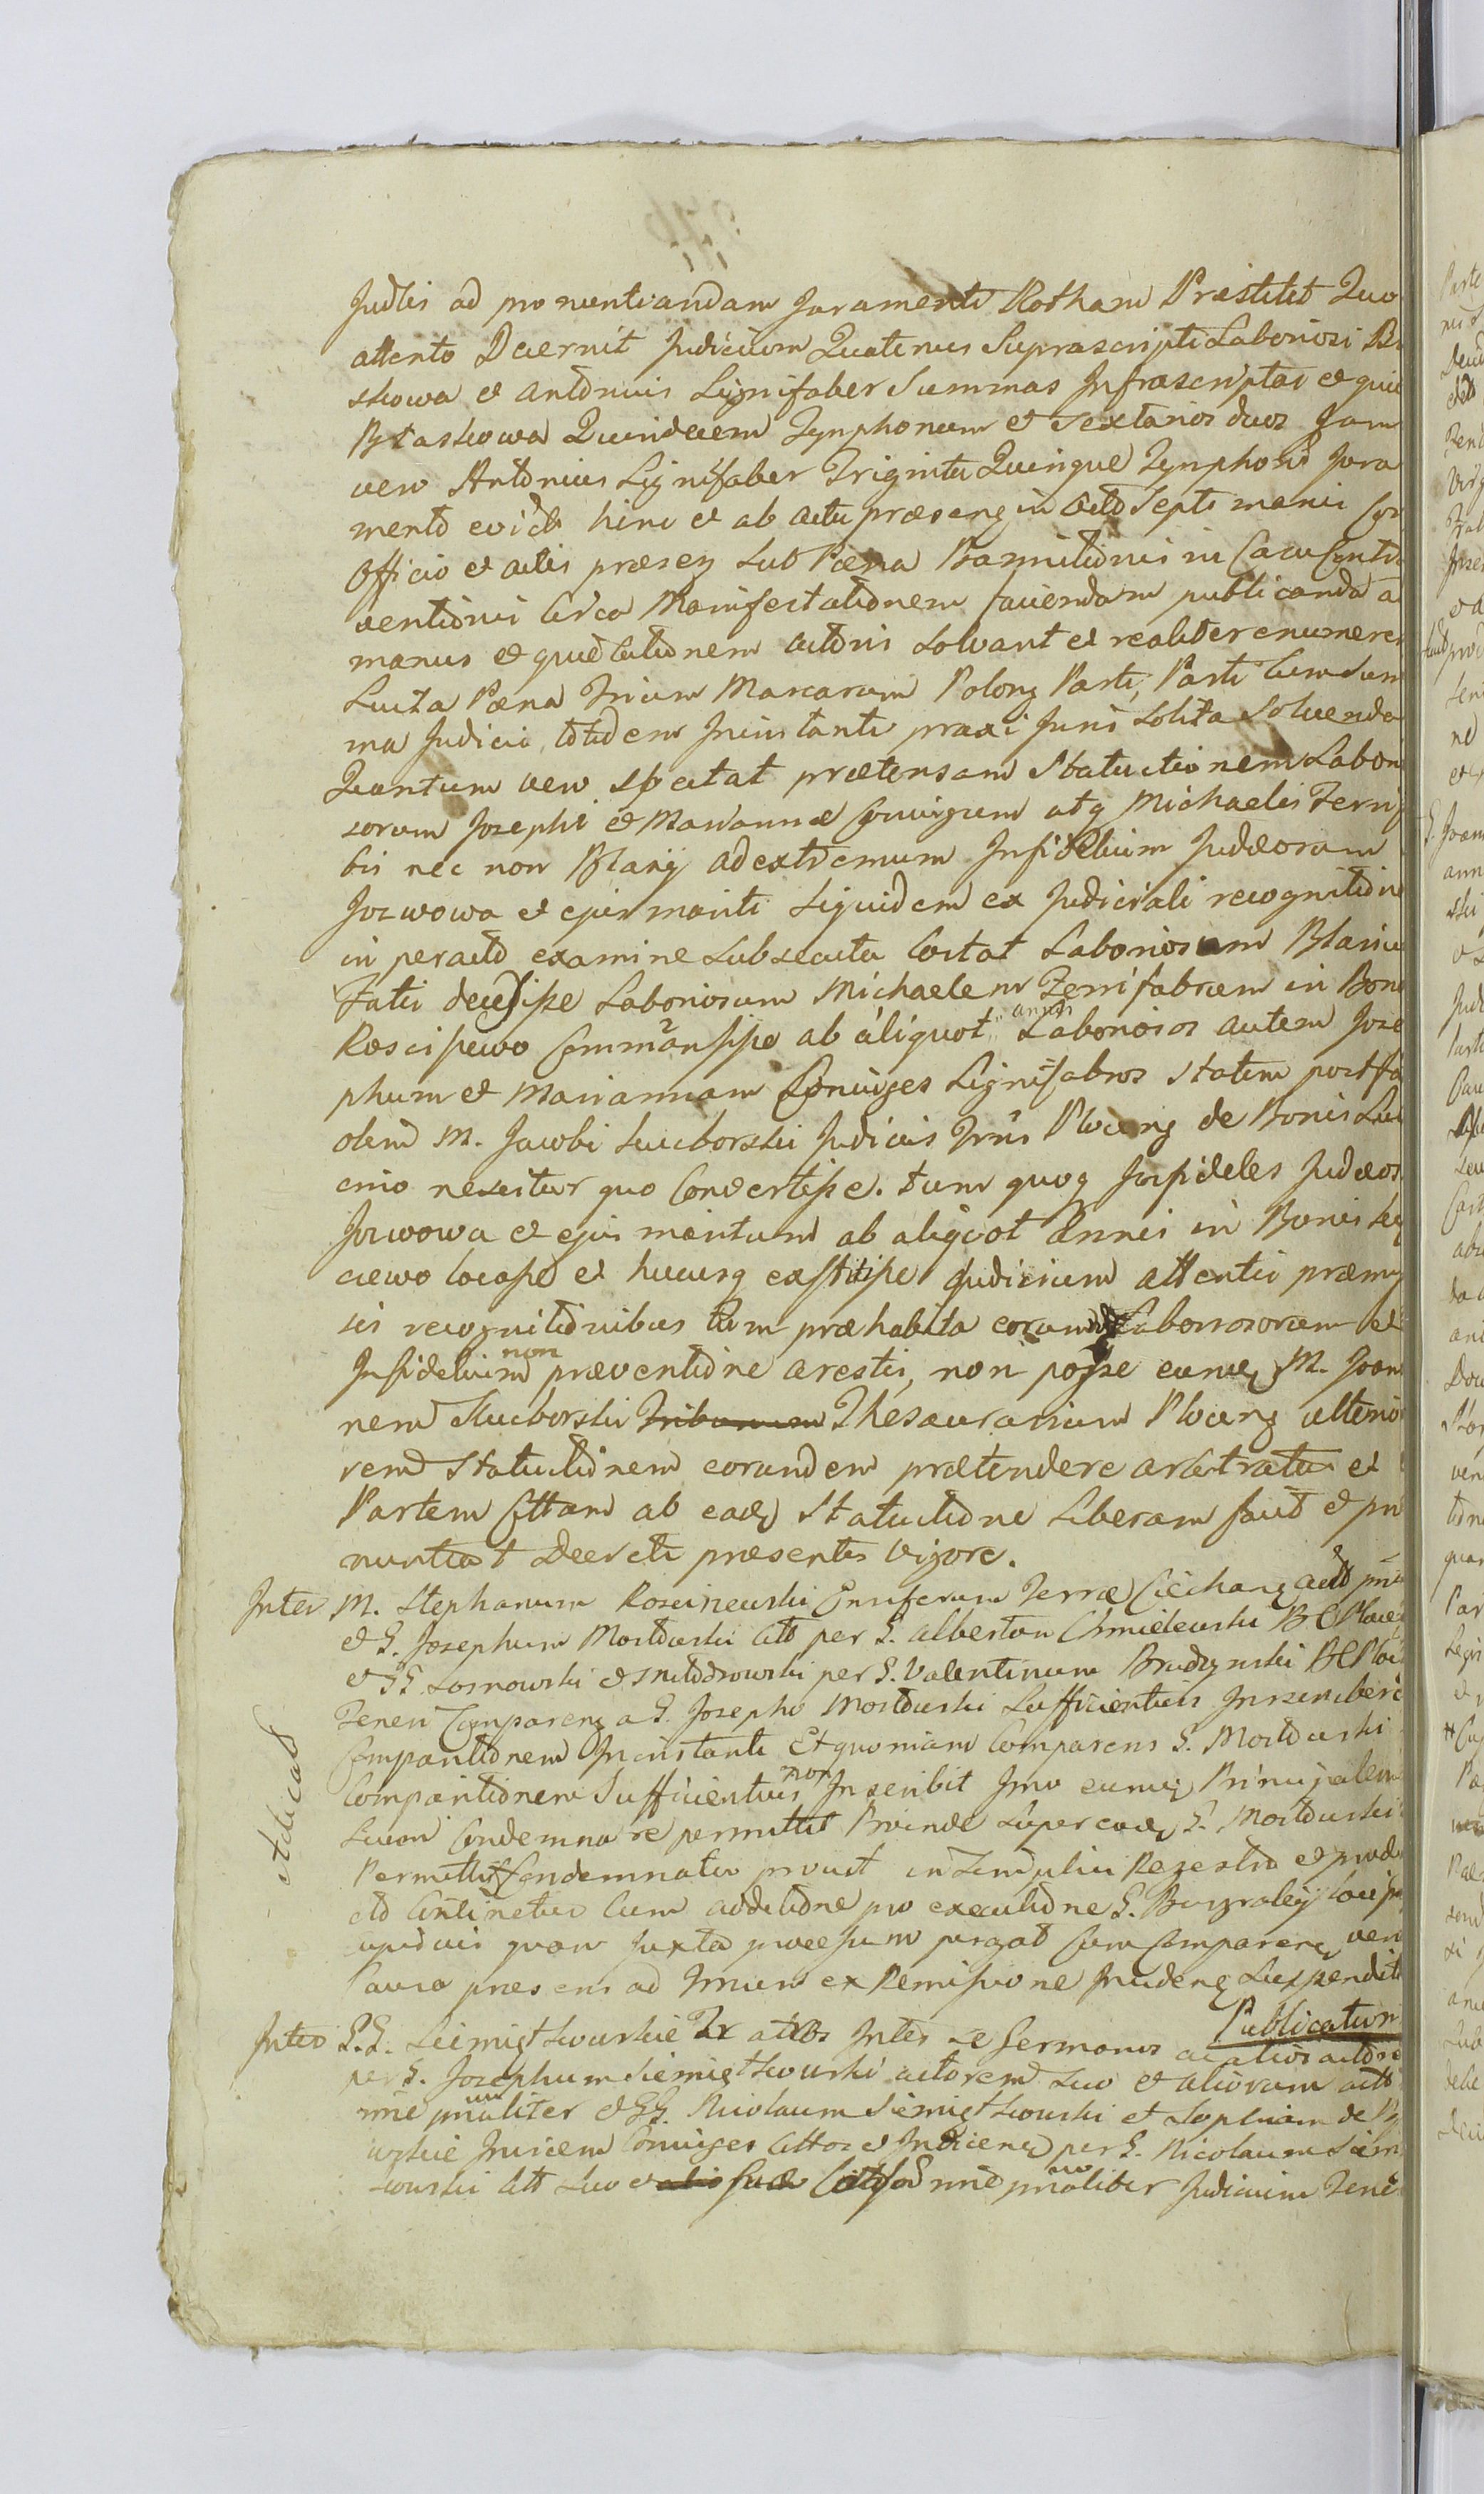 Judlis ad pronuntiandam Juramenti Rotham Præstitit Quo
attento Decernit Judicium Quatenus Suprascripti Laboriosi
skowa et Antonius Lignifaber Summas Infrascriptas et qui
Błaskowa Quindecem Tynphonum et Sextarios duos Jam
vero Antonius Lignifaber Triginta Quinque Tynphonũ Jura
mento evict hinc et ab actu præsenq in octo Septimanis Cor
Officio et actis præsenq Sub Pæna Bannitionis in Casu Contra
ventionis Circa Manifestationem faciendam publicanda a
manus et quietationem actoris Solvant et realiter enumerent
Luita Pæna Trium Marcarum Polonq Parti, Parti Cum Sum
ma Judicio, totidem Juris tanti praxi Juris Solita Solvenda
Quantum vero Spectat prætensam Statutionem Labori
sorum Josephi et Mariannæ Conjugum atq Michaelis Ferrif
bri nec non Blarij ad extremum Infidelium Judæorum
Jozwowa et ejus mariti Siquidem ex Judiciali recognitione
in peracto examine Subsecuta Costat Laboriosum
Fatis decessisse Laboriosum Michaelem Ferrifabrum in Bon
Roscisewo Commansisse ab aliquot annis Laboriosos autem Jose
phum et Mariannam Conjuges Lignifabros Statim post fa
olim M. Jacobi Sucborski Judicis Trris Plocenq de Bonis
cino nescitur quo Convertisse. tum quoq Infideles Judæos
Jozwowa et ejus maritum ab aliquot Annis in Bonis
ciewo locasse et hucusq exstitisse Judicium attentis præmis
sis recognitionibus tum præhabita eorumd Laboriosorum et
Infidelium non præventione arestis, non posse eumq M. Joan
nem Sucborski Tribunum Thesaurarium Plocenq ulterio
rem Statutionem eorundem prætendere arbitratur et
Partem Cittam ab eadq Statutione Liberam facit et pro
nuntiat Decreti præsentis Vigore.
Inter M. Stephanum Roscisewski Ensiferum Terræ Ciechanq act
et G. Josephum Mostowski Citt per G. Albertum Chmielewski B C Plocen
et GG. Sosnowski et per G. Valentinum Brudzynski B C Ploc
Tenen Comparenq a G. Josepho Mostowski Sufficientius Inscribere
Comparitionem Instanti Et quoniam Comparens G. Mostowski
Comparitionem Sufficientius non Inscribit Imo eumq Principalem
Suum Condemnare permittit Proinde Super eadq G. Mostowski
Permittitt Condemnatur prout in Simplici Regestro et prod
cto Continetur Cum additione pro executione G. Burgrabij
quam Juxta processum peragat Cum Comparenq vero
Causa præsens ad Trrium ex Remissione Incidenq Suspenditur
etdicat
Publication
Inter G.G. Siemiątkowskie Fr actos Inter Se Germanos ac alios actores
per G. Josephum Siemiątkowski actorem Suo et aliorum actt
nne principaliter et GG. Nicolaum Siemiątkowski et Sophiam de
wskie Invicem Conjuges Cittos et Indicenq per G. Nicolaum Siem
kowski Citt Suo et alio Suæ nne principaliter Judicium Tene